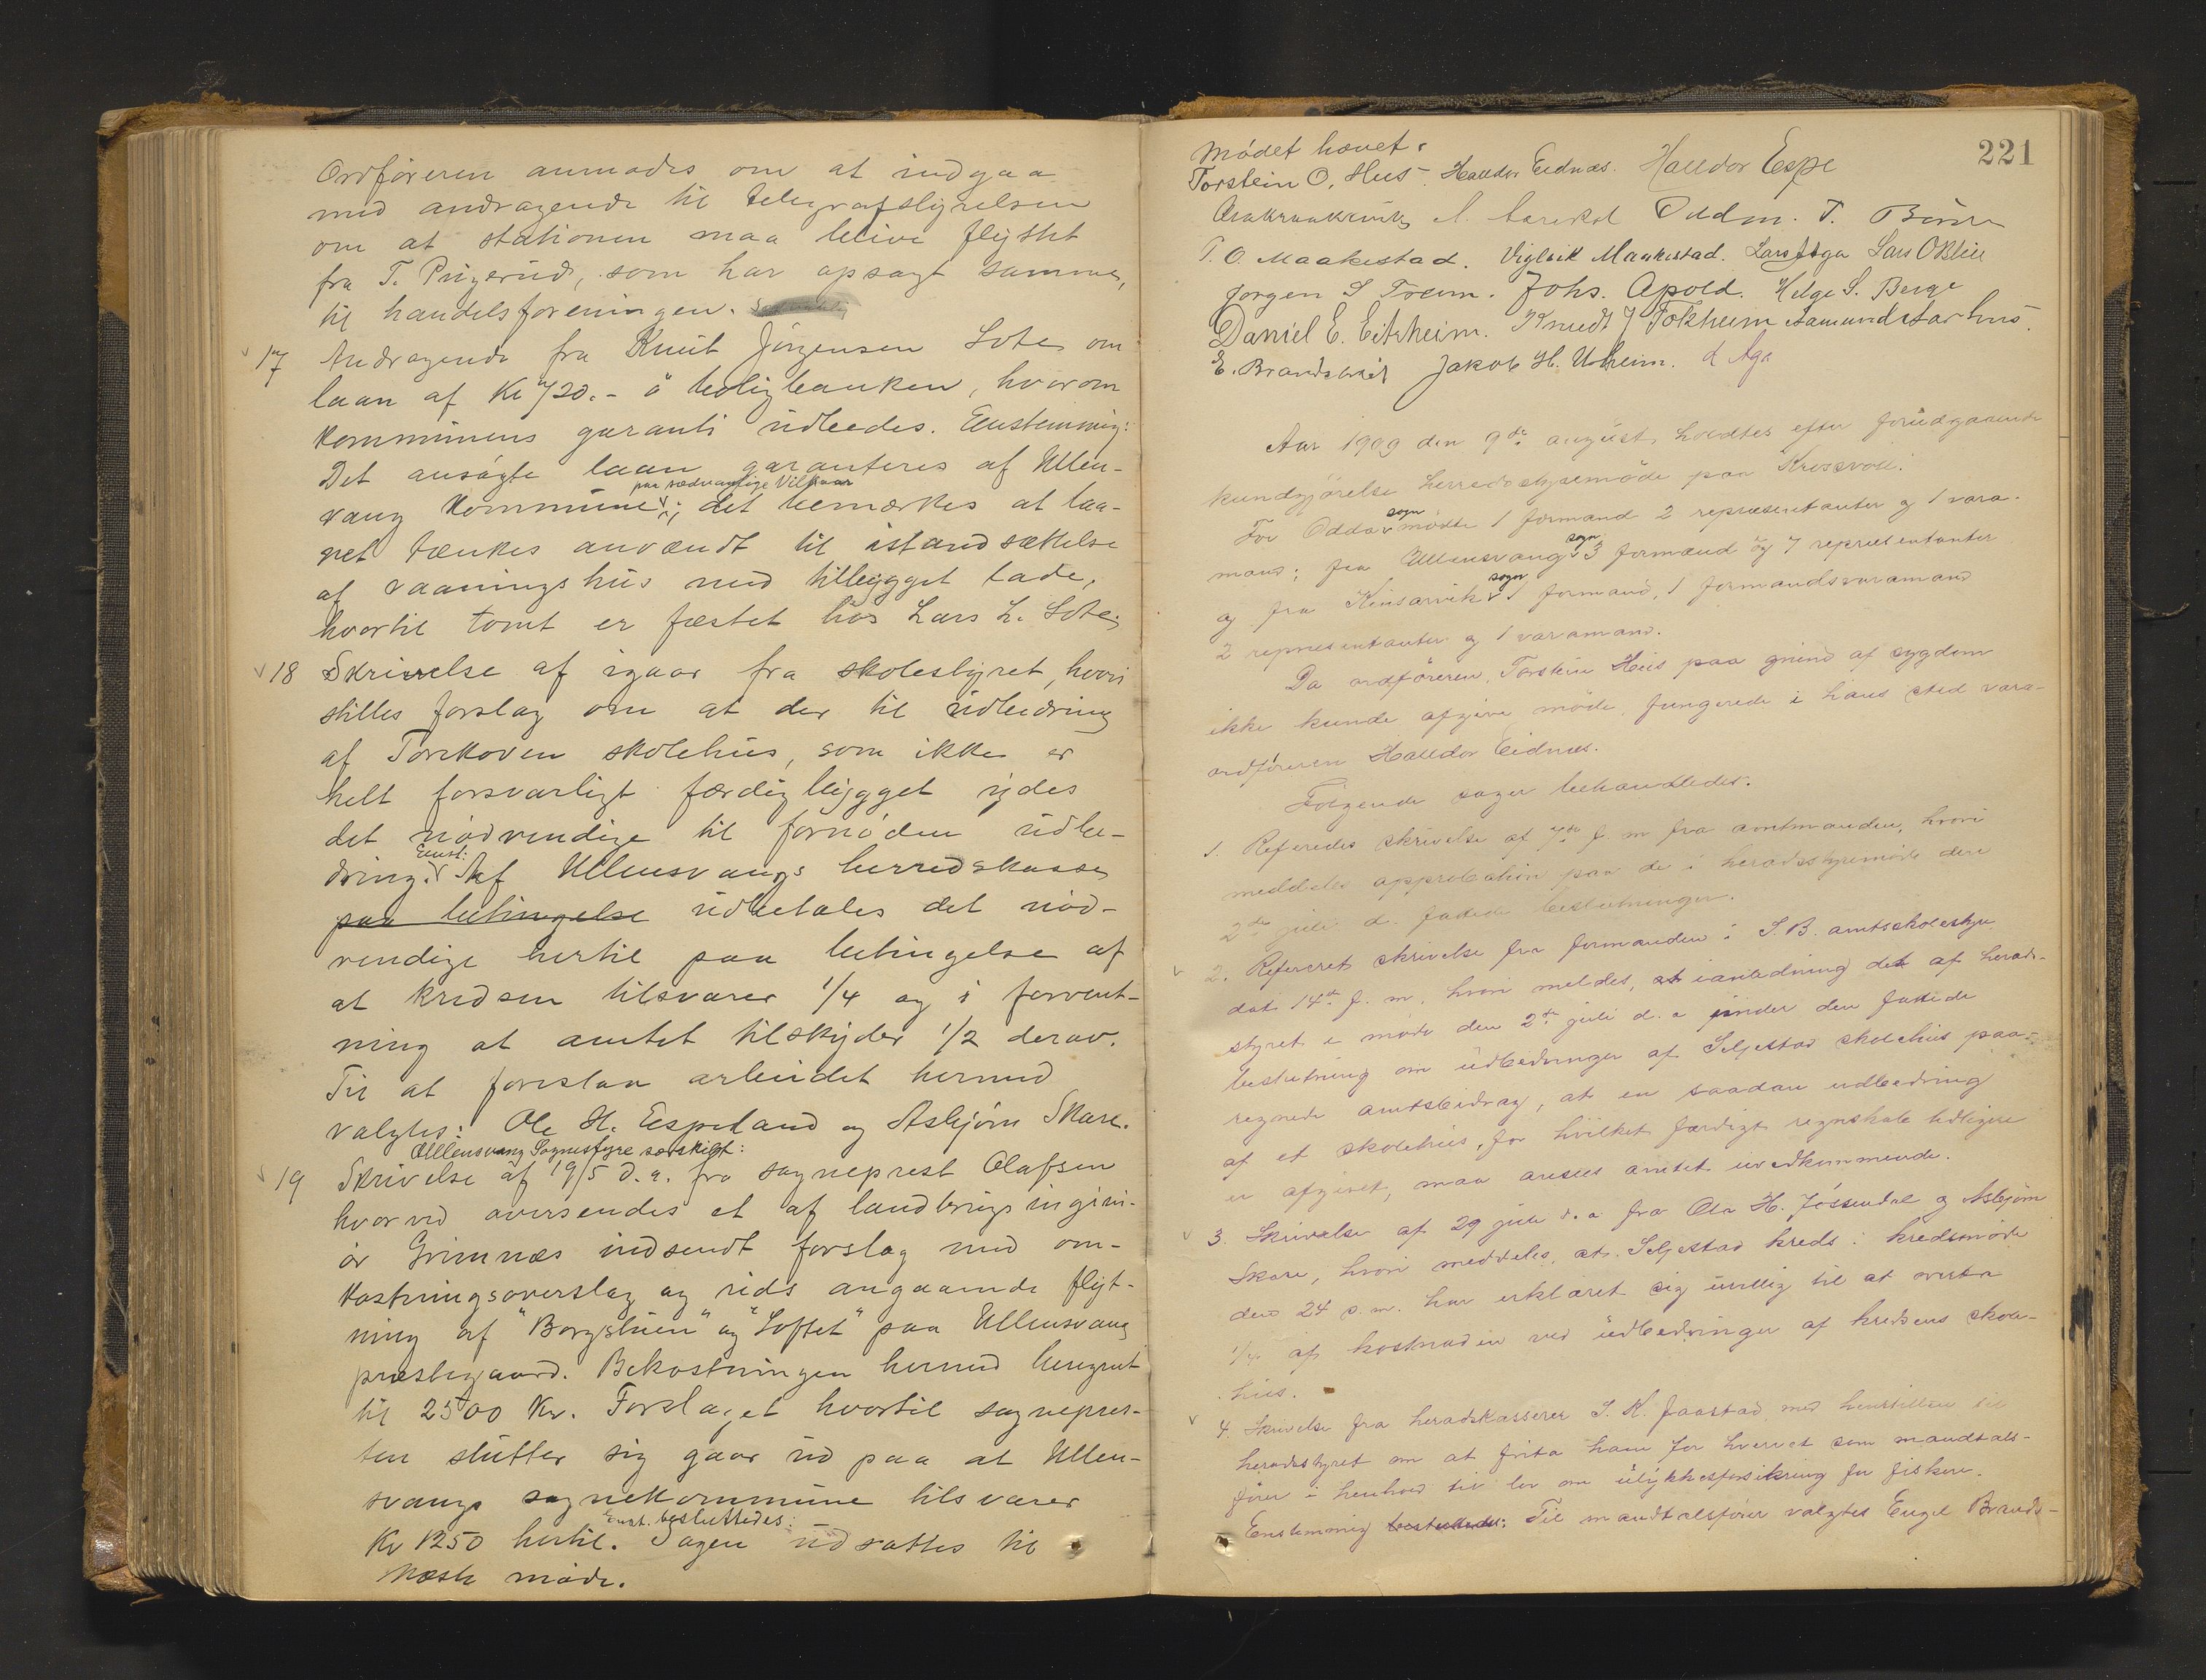 Ordføreren anmodes om at indgaa
med andragende til telegrafstyrelsen
om at stationen maa blive flyttet
fra T. Pngerud, som har opsagt samme,
til handelsforeningen.
17 Andragende fra Knut Jørgensen Lote om
laan af Kr 720.- i boligbanken, hvorom
kommunens garanti udbedes. Enstemmig:
Det ansøgte laan garanteres af Ullens-
vang kommune paa sædvanlige Vilkaar; det bemærkes at laa-
net tænkes anvendt til istandsættelse
af vaaningshus med tilbygget lade,
hvortil tomt er fæstet hos Lars L. Lote.
18 Skrivelse af igaar fra skolestyret, hvori
stilles forslag om at der til udbedring
af Tornkoven skolehus, som ikke er
helt forsvarligt færdigbygget ydes
det nødvendige til fornøden udbe-
dring. Enst: Af Ullensvangs herredskasse
paa betingelse udbetales det nød-
vendige hertil paa betingelse af
at kredsen tilsvarer 1/4 og i forvent-
ning at amtet tilskyder 1/2 derav.
Til at forestaa arbeidet hermed
valgtes: Ole H. Espeland og Asbjørn Skare.
Ullensvang Sognestyre særskilt:
19 Skrivelse af 19/5 d.a. fra sogneprest Olafsen
hvorved oversendes et af landbrugsingeni-
ør Grimnæs indsendt forslag med om-
kostningsoverslag og rids angaaende flyt-
ning af "Borgstuen" og "Loftet" paa Ullensvang
prestegaard. Bekostningen hermed beregnet
til 2500 Kr. Forslaget hvortil sognepres-
ten slutter sig gaar ud paa at Ullen-
svangs sognekommune tilsvarer
Kr 1250 hertil. Enst. besluttedes: Sagen udsattes til
næste møde.
221
Mødet hævet.
Torstein O. Hus. Halldor Eidnæs. Halldor Espe
Oddm. T.
T. O. Maakestad. Vigleik Maakestad. Lars Aga Lars O Bleie
Jørgen S Freim. Johs. Apold. Helge S. Berge
Daniel E. Eitrheim. Knudt J Tokheim Aamund Aarhus.
E. Brandstveit Jakob H. Utheim. Aga
Aar 1909 den 9de august holdtes efter forudgaaende
kundgjørelse herredsstyremøde paa Krossvoll.
For Odda sogn mødte 1 formand 2 repræsentanter og 1 vara-
mand; fra Ullensvang sogn 3 formænd og 7 repræsentanter
og fra Kinsarvik sogn 1 formand, 1 formandsvaramand
2 repræsentanter og 1 varamand.
Da ordføreren, Torstein Hus paa grund af sygdom
ikke kunde afgive møde, fungerede i hans sted vara-
ordføreren Halldor Eidnæs.
Følgende sager behandledes.
1. Referedes skrivelse af 7de f. m fra amtmanden, hvori
meddeles approbation paa de i herredsstyremøde den
2den juli d. fattede beslutninger.
2. Refereret skrivelse fra formanden i S. B. amtsskolestyre
dat 14de f. m. hvori meldes, at i anledning det af herads-
styret i møde den 2de juli d. a under den fattede
beslutning om udbedringen af Seljestad skolehus paa-
regnede amtsbidrag, at en saadan udbedring
af et skolehus, for hvilket færdigt regnskab tidligere
er afgivet, maa ansees amtet uvedkommende.
3. Skrivelse af 29 juli d. a fra Ola H. Jøssendal og Asbjørn
Skare, hvori meddeles, at Seljestad kreds i kredsmøde
den 24 s. m. har erklæret sig uvillig til at overta
1/4 af kostnaden ved udbedringen af kredsens skole-
hus.
4. Skrivelse fra heradskasserer S. K. Jaastad med henstillen til
heradsstyret om at frita ham for hvervet som mandtals-
fører i henhold til lov om ulykkesforsikring for fiskere.
Enstemmig besluttedes: Til mandtalsfører valgtes Engel Brands-